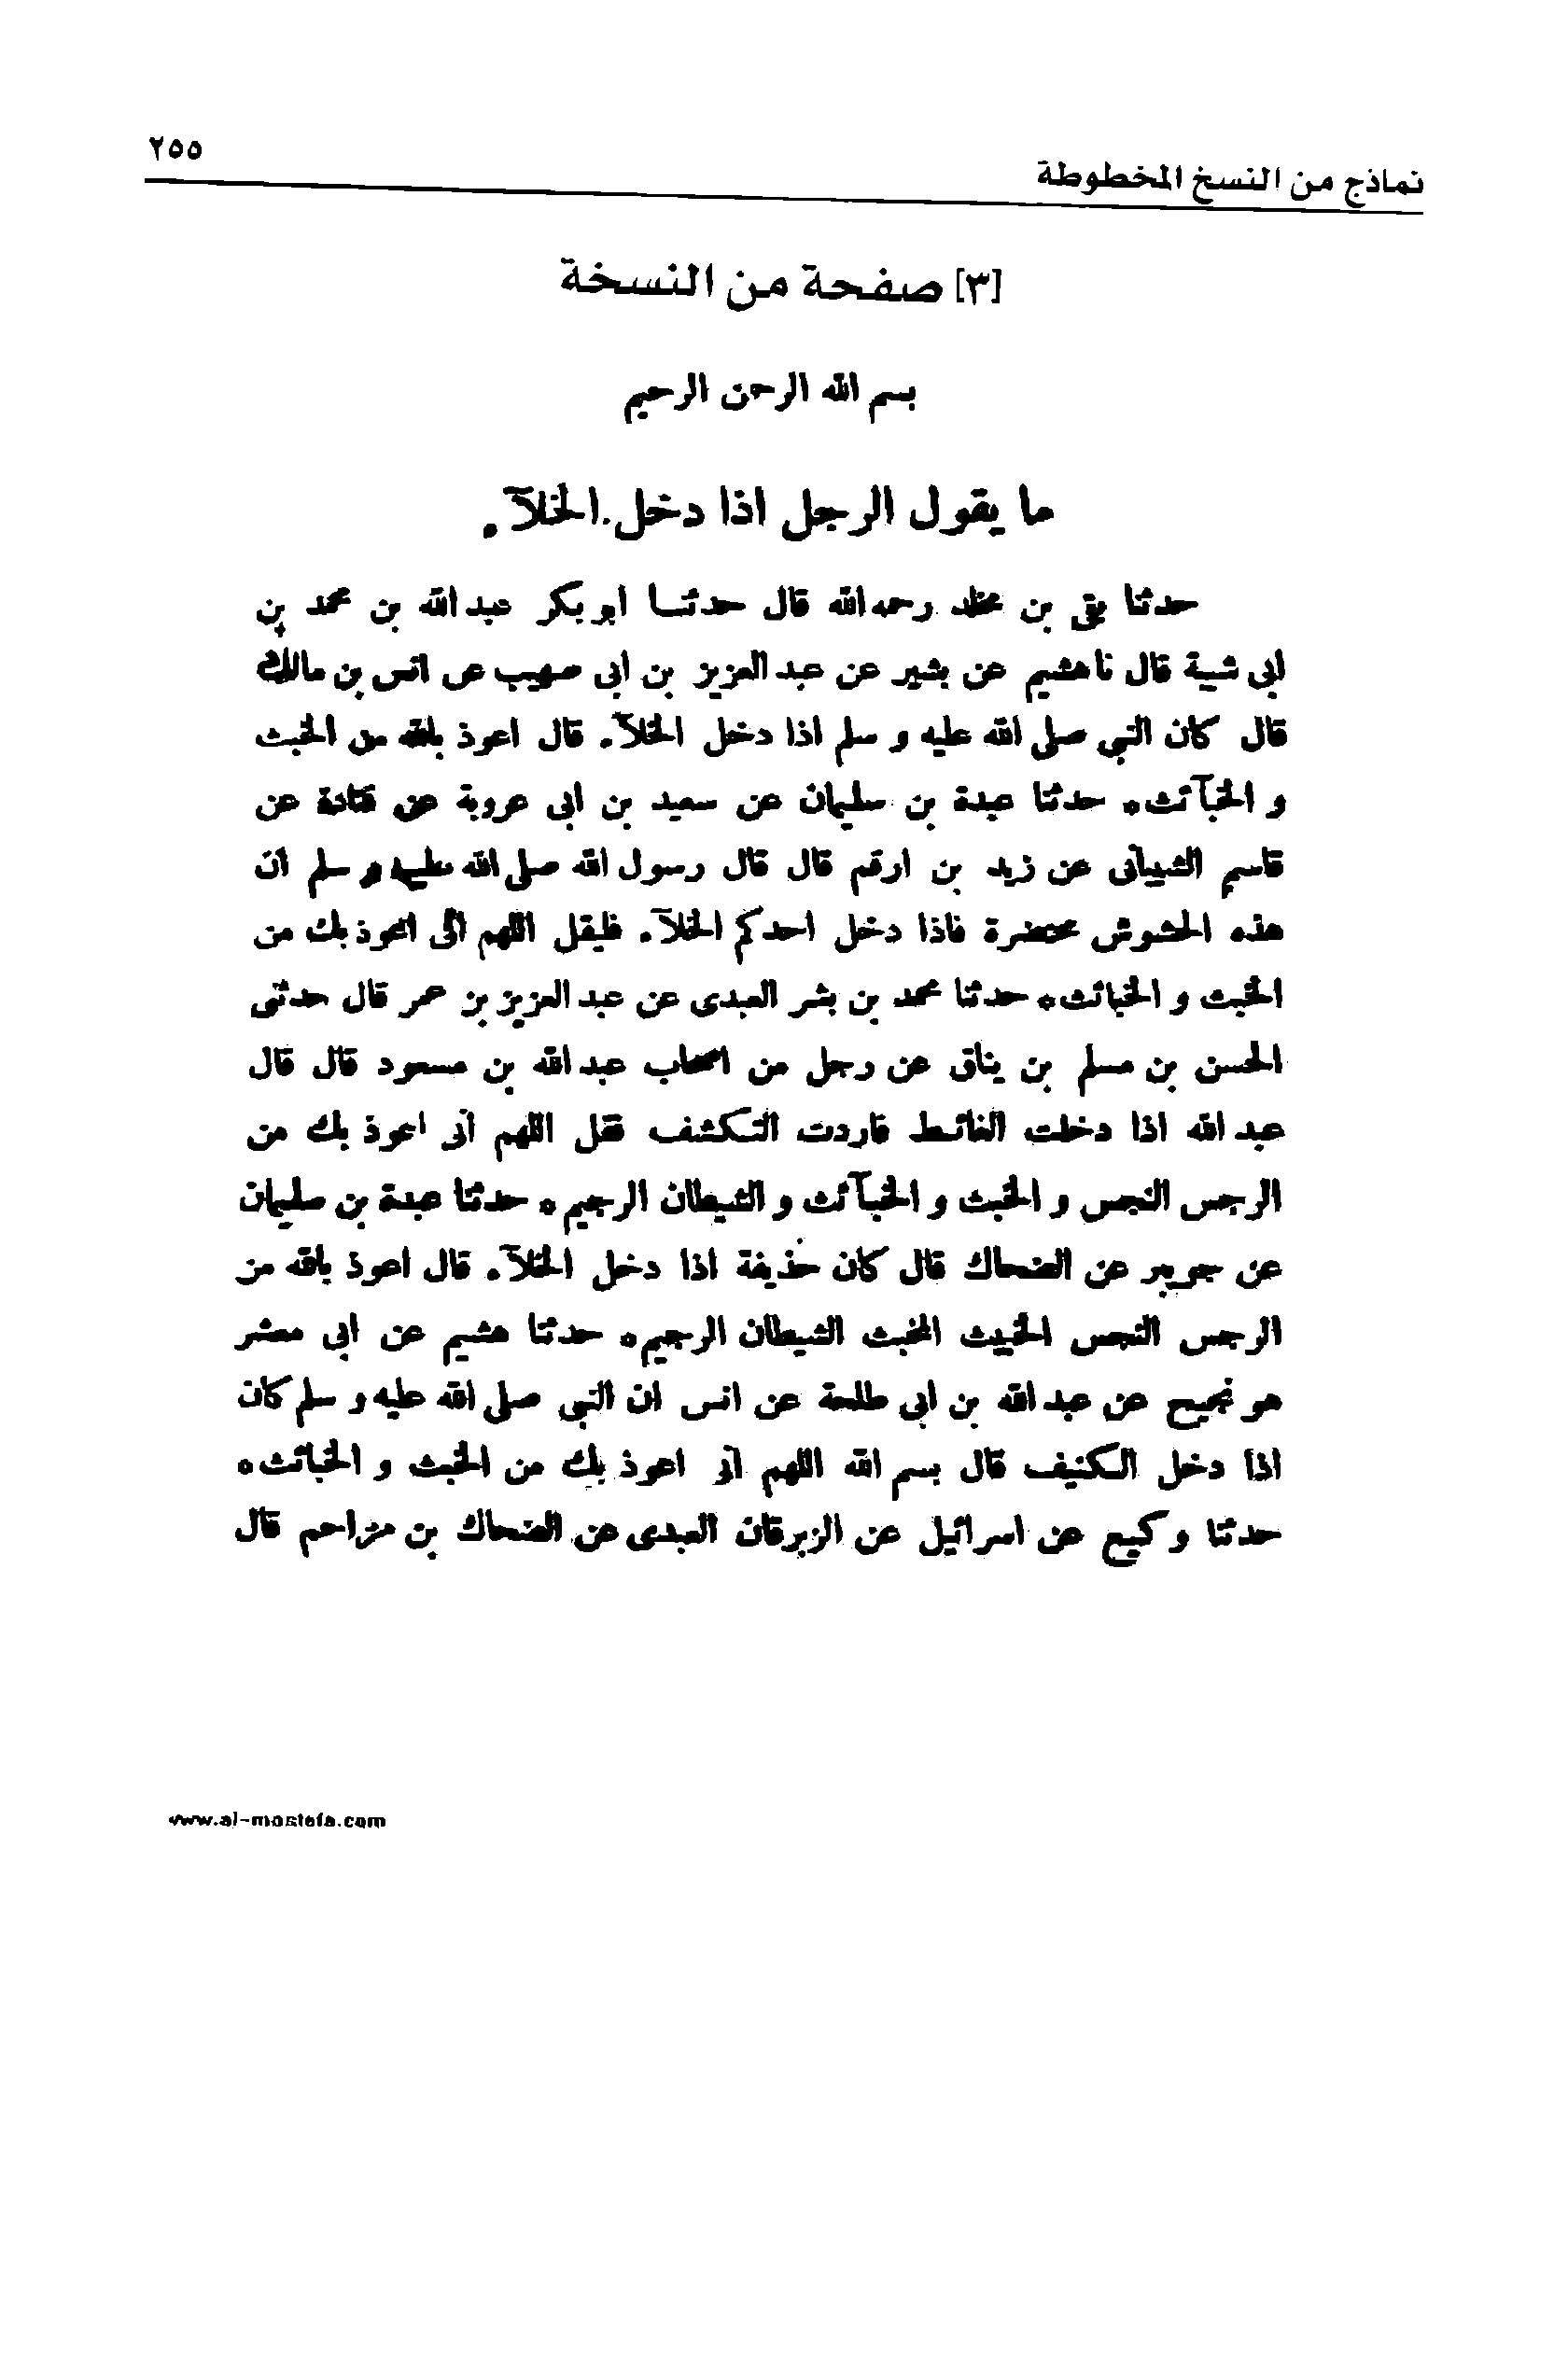 ٢٥٥
نماذج من النسخ المخطوطة
[٣] صفحة من النسخة
بسم الله الرحمن الرحيم
ما يقول الرجل اذا دخل الخلآء
حدثنا بقى بن مخلد رحمه الله قال حدثنا ابو بكر عبد الله بن محمد بن
ابى شيبة قال نا هشيم عن بشير عن عبد العزيز بن ابى صهيب عن انس بن مالك
قال كان النبى صلى الله عليه و سلم اذا دخل الخلآء قال اعوذ بالله من الخبث
و الخبآئث ه حدثنا عبدة بن سليمان عن سعيد بن ابى عروبة عن قتادة عن
قاسم الشيبانى عن زيد بن ارقم قال قال رسول الله صلى الله عليه و سلم ان
هذه الحشوش محتضرة فاذا دخل احدكم الخلآء فليقل اللهم انى اعوذ بك من
الخبث و الخبائث ه حدثنا محمد بن بشر العبدى عن عبد العزيز بن عمر قال حدثنى
الحسن بن مسلم بن يناق عن رجل من اصحاب عبد الله بن مسعود قال قال
عبد الله اذا دخلت الغائط فاردت التكشف فقل اللهم انى اعوذ بك من
الرجس النجس و الخبث و الخبآئث و الشيطان الرجيم ه حدثنا عبدة بن سليمان
عن جويبر عن الضحاك قال كان حذيفة اذا دخل الخلآء قال اعوذ بالله من
الرجس النجس الخبيث المخبث الشيطان الرجيم ه حدثنا هشيم عن ابى معشر
هو نجيح عن عبد الله بن ابى طلحة عن انس ان النبى صلى الله عليه و سلم كان
اذا دخل الكنيف قال بسم الله اللهم انى اعوذ بك من الخبث و الخبائث ه
حدثنا وكيع عن اسرائيل عن الزبرقان العبدى عن الضحاك بن مزاحم قال
www.al-mostafa.com